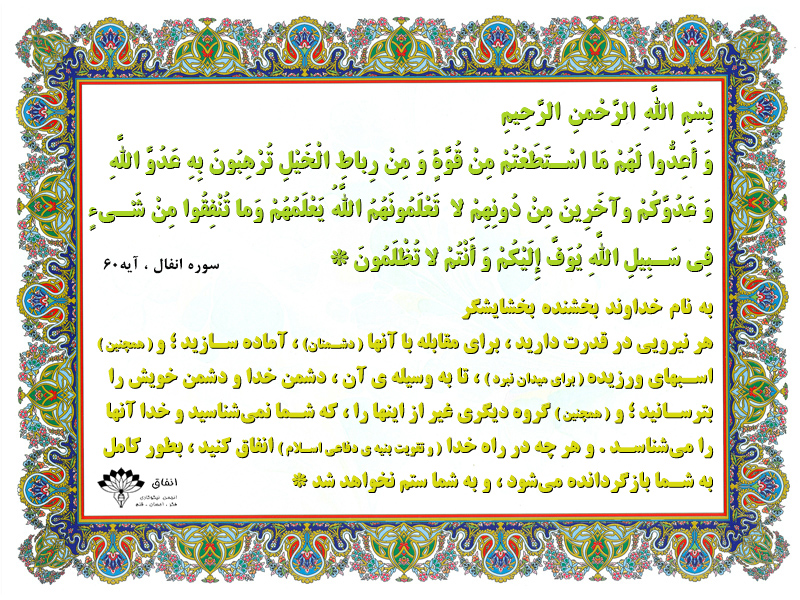 بِسْمِ اللَّهِ الرَّحْمنِ الرَّحِيمِ
وَ أَعِدُّوا لَهُمْ مَا اسْتَطَعْتُمْ مِنْ قُوَّةٍ وَ مِنْ رِباطِ الْخَيْلِ تُرْهِبُونَ بِهِ عَدُوَّ اللَّهِ
وَ عَدُوَّكُمْ وآخَرِينَ مِنْ دُونِهِمْ لا تَعْلَمُونَهُمُ اللَّهُ يَعْلَمُهُمْ وَما تُنْفِقُوا مِنْ شَیءٍ
فِی سَبِيلِ اللَّهِ يُوَفَّ إِلَيْكُمْ وَ أَنْتُمْ لا تُظْلَمُونَ *
سوره انفال ، آیه۶۰
به نام خداوند بخشنده بخشایشگر
هر نیرویی در قدرت دارید ، برای مقابله با آنها ( دشمنان) ، آماده سازید ؛ و ( همچنین )
اسبهای ورزیده ( برای میدان نبرد ) ، تا به وسیله ی آن ، دشمن خدا و دشمن خویش را
بترسانید ؛ و ( همچنین ) گروه دیگری غیر از اینها را ، که شما نمی‌شناسید و خدا آنها
را می‌شناسد . و هر چه در راه خدا ( و تقویت بنیه ی دفاعی اسلام ) انفاق کنید ، بطور کامل
به شما بازگردانده می‌شود ، و به شما ستم نخواهد شد *
انفاق
انجمن نیکوکاری
فکر ، احسان ، قلم